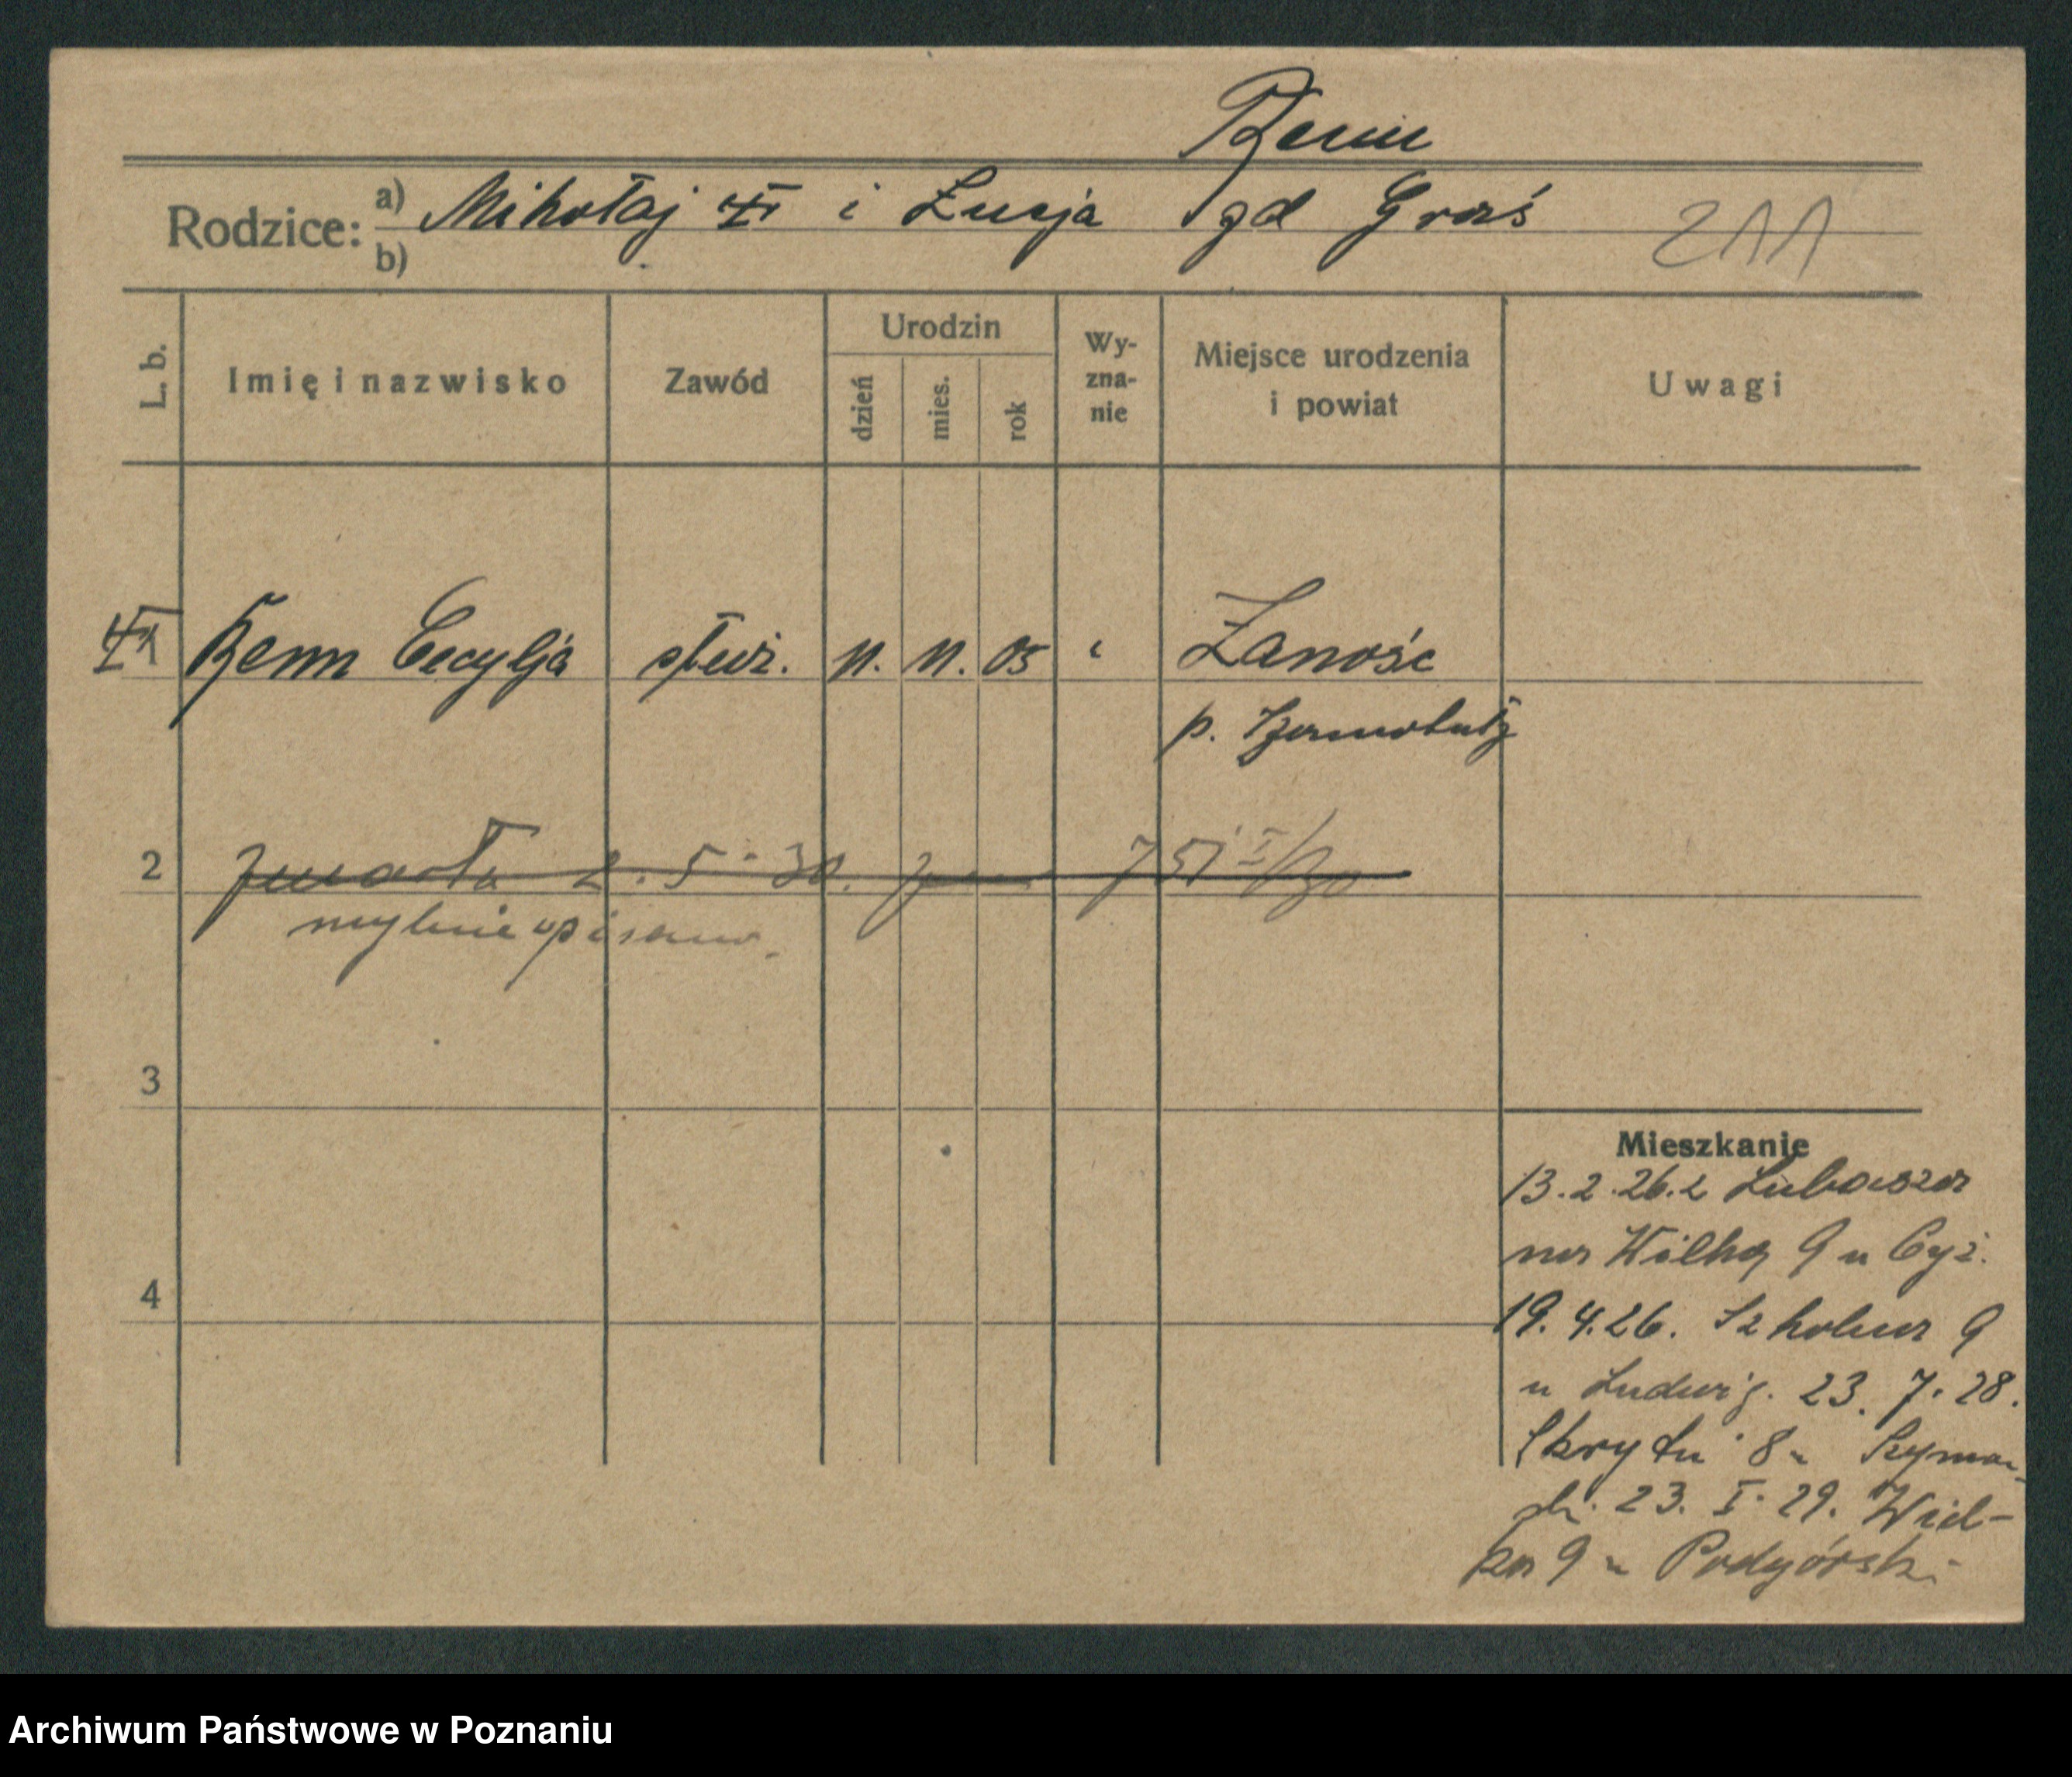 Benn
Rodzice: a) Mikołaj VI i Łucja zd Groś 211
b)
L. b. Imię i nazwisko Zawód Urodzin dzień mies. rok Wy-zna-nie Miejsce urodzenia i powiat Uwagi
VI Benn Cecylja służ. 11. 11. 05 " Zamość
p. Szamotuły
2 Zmarła 2. 5. 30. 751 I/30
mylnie wpisano.
3
4
Mieszkanie
13.2.26. z Lubosza
na Wielką 9 u Cyż.
19.4.26. Szkolna 9
u Ludwig. 23. 7. 28.
Skryta 8 u Szymań-
ski. 23. I. 29. Wiel-
ka 9 u Podgórski
Archiwum Państwowe w Poznaniu